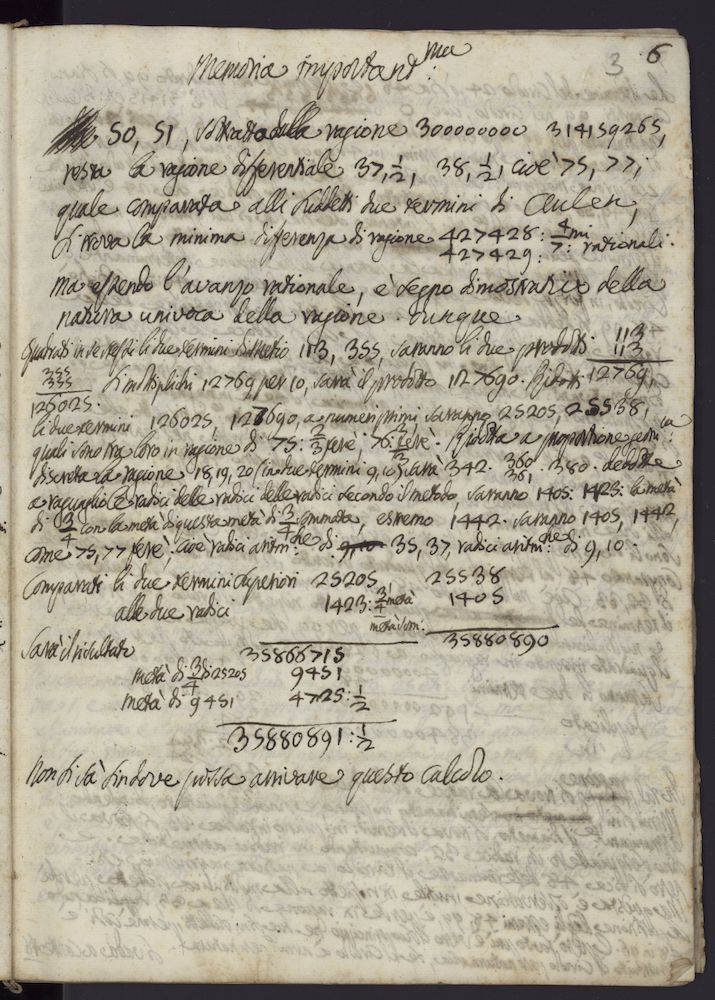 3 6
Memoria important.ma
50, 51, sottratta dalla ragione 300000000 314159265,
resta la ragione differentiale 37,1/2, 38,1/2, cioè 75, 77;
quale comparata alli suddetti due termini di Ceulen,
si trova la minima differenza di ragione 427428: 4/7mi rationali.
427429:
ma essendo l'avanzo rationale, è segno dimostrativo della
natura univoca della ragione. dunque
quadrati in se stessi li due termini di Metio 113, 355, saranno li due prodotti 113
113
355 si moltiplichi 12769, per 10, sarà il prodotto 127690. Ridotti 12769,
355
126025.
li due termini 126025, 127690, a numeri primi saranno 25205, 25538,
quali sono tra loro in ragione di 75: 2/3 fere, 76: 2/3 fere. Ridotta a proportione
discreta la ragione 18, 19, 20 (in due termini 9, 10) sarà 342. 360. 380. dedotte
361
a ragguaglio le radici delle radici delle radici secondo il metodo, saranno 1405: 1423: la metà
di 3/4 con la metà di questa metà di 3/4 sommata, estremo 1442. saranno 1405, 1442,
come 75, 77 fere, cioè radici aritm.che di 35, 37, radici aritm.che di 9, 10.
Comparati li due termini superiori 25205 25538
alle due radici 1423: 3/4 metà 1405
metà
Sarà il risultato 35866715 35880890
metà di 3/4 di 25205 9451
metà di 9451 4725: 1/2
35880891: 1/2
Non si sà sin dove possa arrivare questo calcolo.